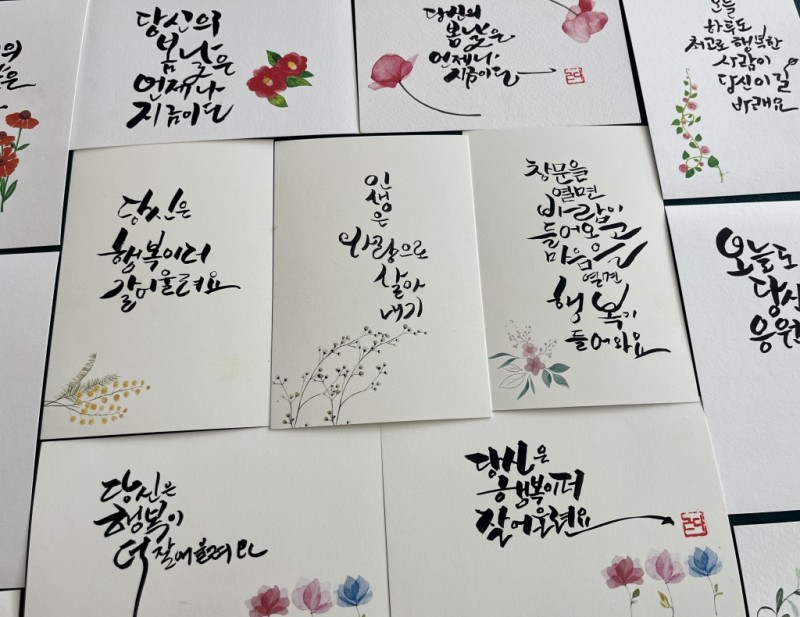 당신의
봄날은
언제나
지금이다
당신의
봄날은
언제나
지금이다
오늘
하루도
최고로 행복한
사람이
당신이길
바래요
당신은
행복이 더
잘 어울려요
인
생
은
사랑으로
살아
내기
창문을
열면
바람이
들어오고
마음을
열면
행복이
들어와요
오늘도
당신
응원
당신은
행복이
더 잘 어울려요
당신은
행복이 더
잘 어울려요